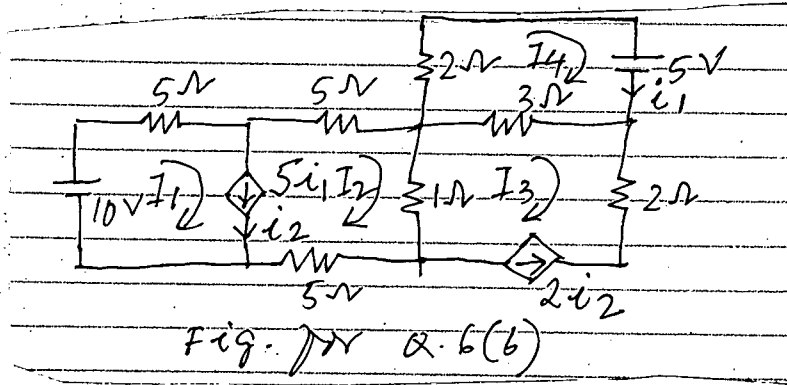 2Ω I4 5V
5Ω 5Ω 3Ω i1
10V I1 5i1 I2 1Ω I3 2Ω
i2
5Ω 2i2
Fig. for Q.6(b)